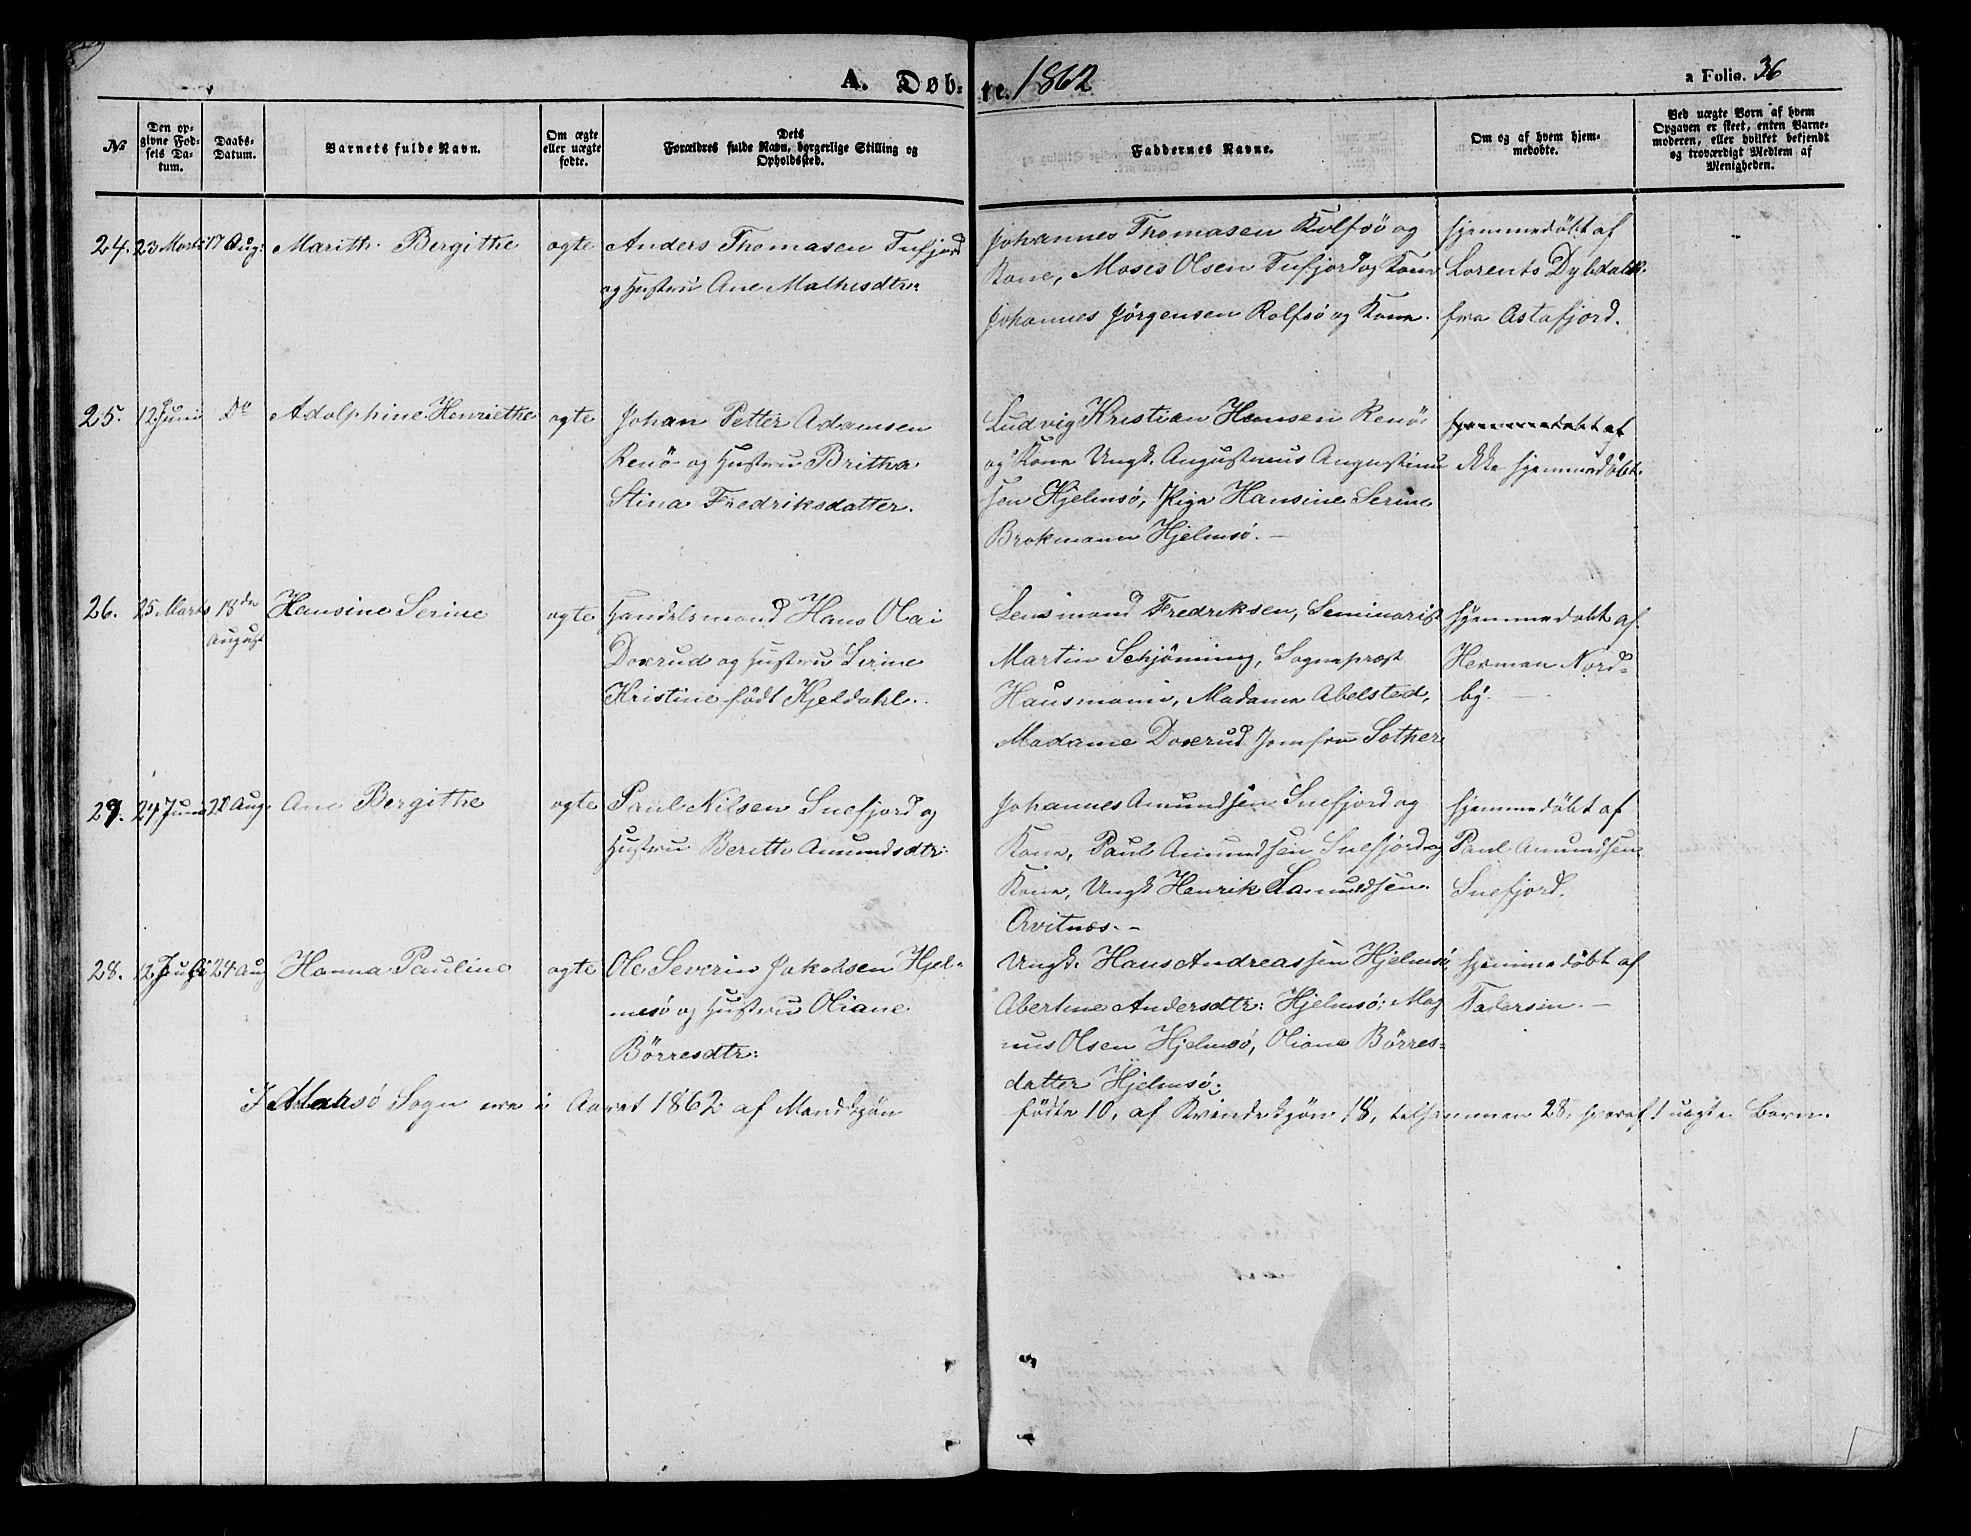 A. Døb-
te. 1862
a Folio. 36
No
Den op-
givne Fød-
sels Da-
tum.
Daabs-
Datum.
Barnets fulde Navn.
Om ægte
eller uægte
fødte.
Dets
Forældres fulde Navn, borgerlige Stilling og
Opholdssted.
Faddernes Navne.
Om og af hvem hjem-
medøbte.
Ved uægte Børn af hvem
Opgaven er skeet, enten Barne-
moderen, eller hvilket bekjendt
og troværdigt Medlem af
Menigheden.
24. 23 Marts 17 Aug: Marith Bergithe ægte
Anders Thomasen Tufjord
og Hustru Ane Mathisdtr:
Johannes Thomasen Rolfsö og
Kone, Moses Olsen Tufjord og Kone
Johannes Jörgensen Rolfsö og Kone.
Hjemmedöbt af
Lorents Dybdahl
fra Astafjord.
25. 12 Juni Do Adolphine Henriethe ægte
Johan Petter Adamsen
Renö og Hustru Britha
Stina Fredriksdatter.
Ludvig Kristian Hansen Renö
og Kone Ungk. Augustinus Augustinu
sen Hjelmsö, Pige Hansine Serine
Brokmann Hjelmsö.
hjemmedöbt af
ikke hjemmedöbt.
26. 25 Marts 18de
August
Hansine Serine ægte
Handelsmand Hans Olai
Doxrud og Hustru Serine
Kristine födt Kjeldahl.
Lensmand Fredriksen, Seminarist
Martin Schjöning, Sogneprest
Hausmann, Madame Abelsted,
Madame Doxrud Jomfru Sother
Hjemmedöbt af
Herman Nord-
by.
27. 24 Juni 21 Aug. Ane Bergithe ægte
Paul Nilsen Snefjord og
Hustru Berethe Amundsdtr:
Johannes Amundsen Snefjord og
Kone, Paul Amundsen Snefjord og
Kone, Ungk Henrik Samuelsen
Orvitnæs.
Hjemmedöbt af
Paul Amundsen
Snefjord.
28. 12 Juli 24 Aug Hanna Pauline ægte
Ole Severin Jakobsen Hjel-
mesö og Hustru Oliane
Börresdtr:
Ungk. Hans Andreassen Hjelmsö
Abertine Andersdtr: Hjelmsö: Mag
nus Olsen Hjelmsö, Oliane Börres-
datter Hjelmsö:
Hjemmedöbt af
Faderen.
I Maasö Sogn ere i Aaret 1862 af Mandkjön
födte 10, af Kvindekjön 18, tilsammen 28, hvoraf 1 uægte Barn.